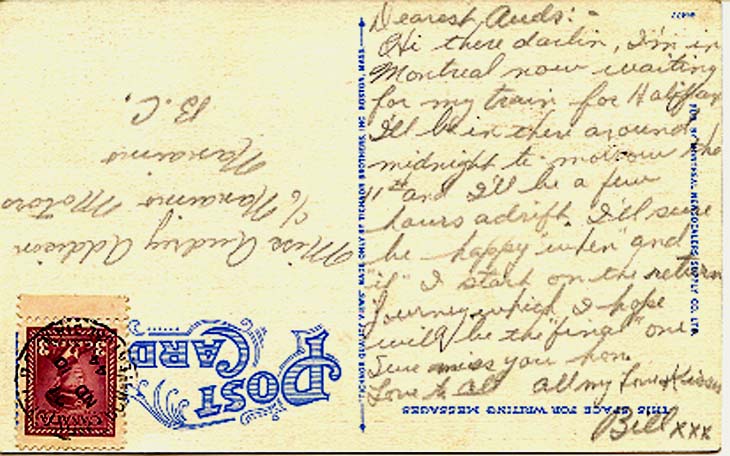 Dearest Auds: -
Hi there darlin, I'm in
Montreal now waiting
for my train for Halifax
I'll be in there around
midnight to-morrow the
11th and I'll be a few
hours adrift. I'll sure
be happy "when" and
"if" I start on the return
journey which I hope
will be the "final" one
Sure miss you hon.
Love to all All my love & kisses
Bill xxx
THIS SPACE FOR WRITING MESSAGES
POST
CARD
Miss Audrey Addison
c/o Nanaimo Motors
Nanaimo
B.C.
TICHNOR QUALITY VIEWS MADE ONLY BY TICHNOR BROTHERS INC. BOSTON, MASS.
BY MONTREAL NEWSDEALERS SUPPLY CO., LTD.
CANADA
3 3